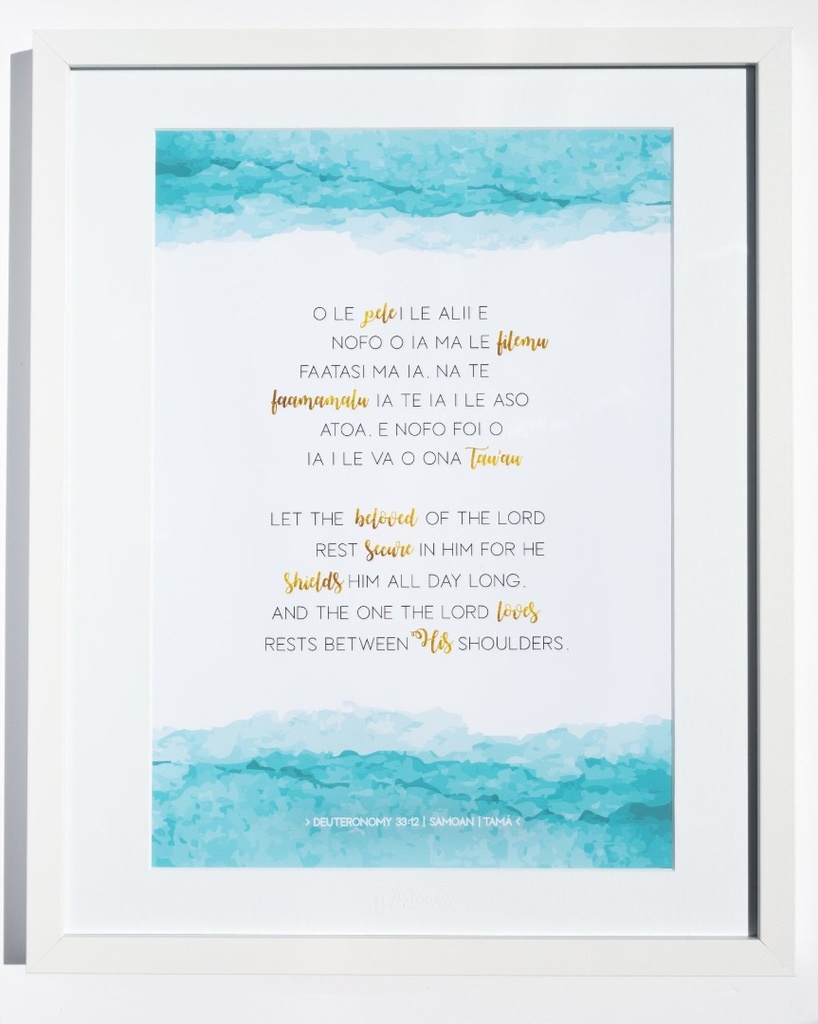 O LE pele I LE ALII E
NOFO O IA MA LE filemu
FAATASI MA IA. NA TE
faamamalu IA TE IA I LE ASO
ATOA. E NOFO FOI O
IA I LE VA O ONA Tau'au
LET THE beloved OF THE LORD
REST Secure IN HIM FOR HE
Shields HIM ALL DAY LONG.
AND THE ONE THE LORD loves
RESTS BETWEEN His SHOULDERS.
> DEUTERONOMY 33:12 | SAMOAN | TAMĀ <